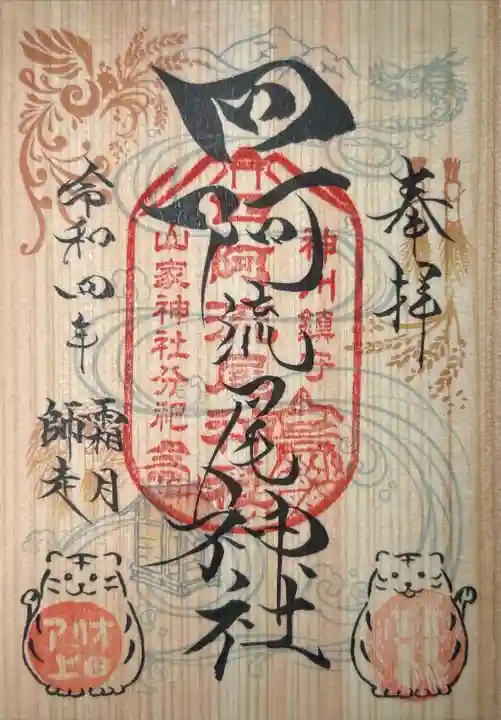 奉拝
四阿荒尾神社
神川鎮守
四阿荒尾神社
山家神社分祀
令和四年
霜月
師走
アリオ
上田